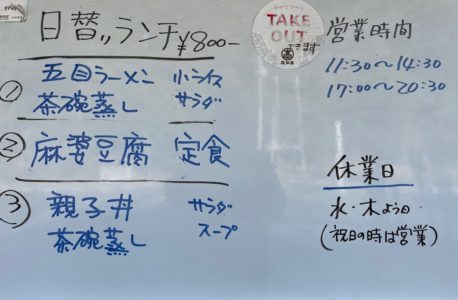 日替りランチ ¥800-
① 五目ラーメン 小ライス
茶碗蒸し サラダ
② 麻婆豆腐 定食
③ 親子丼 サラダ
茶碗蒸し スープ
TAKE
OUT
できます
営業時間
11:30〜14:30
17:00〜20:30
休業日
水・木よう日
(祝日の時は営業)